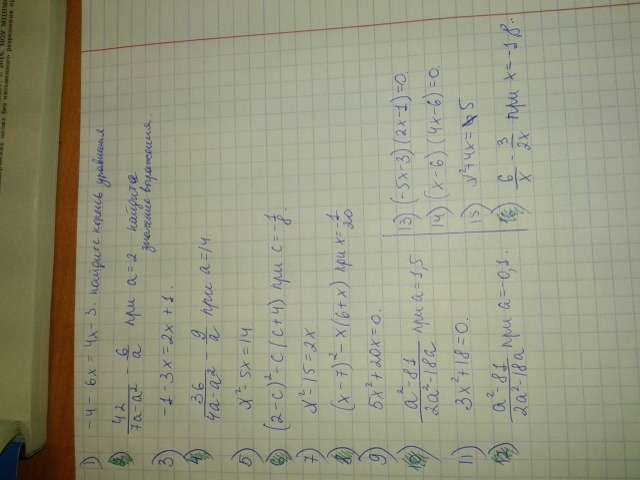 © 2016. НОУ МЦНМО
без письменного разрешения
1) -4 - 6x = 4x - 3. найдите корень уравнения
2) 42/(7a-a²) - 6/a при a=2 найдите
значение выражения.
3) -1-3x=2x+1.
4) 36/(4a-a²) - 9/a при a=14.
5) x²-5x=14
6) (2-c)²-c(c+4) при c=-1/8.
7) x²-15=2x
8) (x-7)²-x(6+x) при x=-1/20
9) 5x²+20x=0.
10) (a²-81)/(2a²-18a) при a=1,5
11) 3x²+18=0.
12) (a²-81)/(2a²-18a) при a=-0,1.
13) (-5x-3)(2x-1)=0.
14) (x-6)(4x-6)=0.
15) x²+4x=5
16) 6/x - 3/2x при x=-1,8.